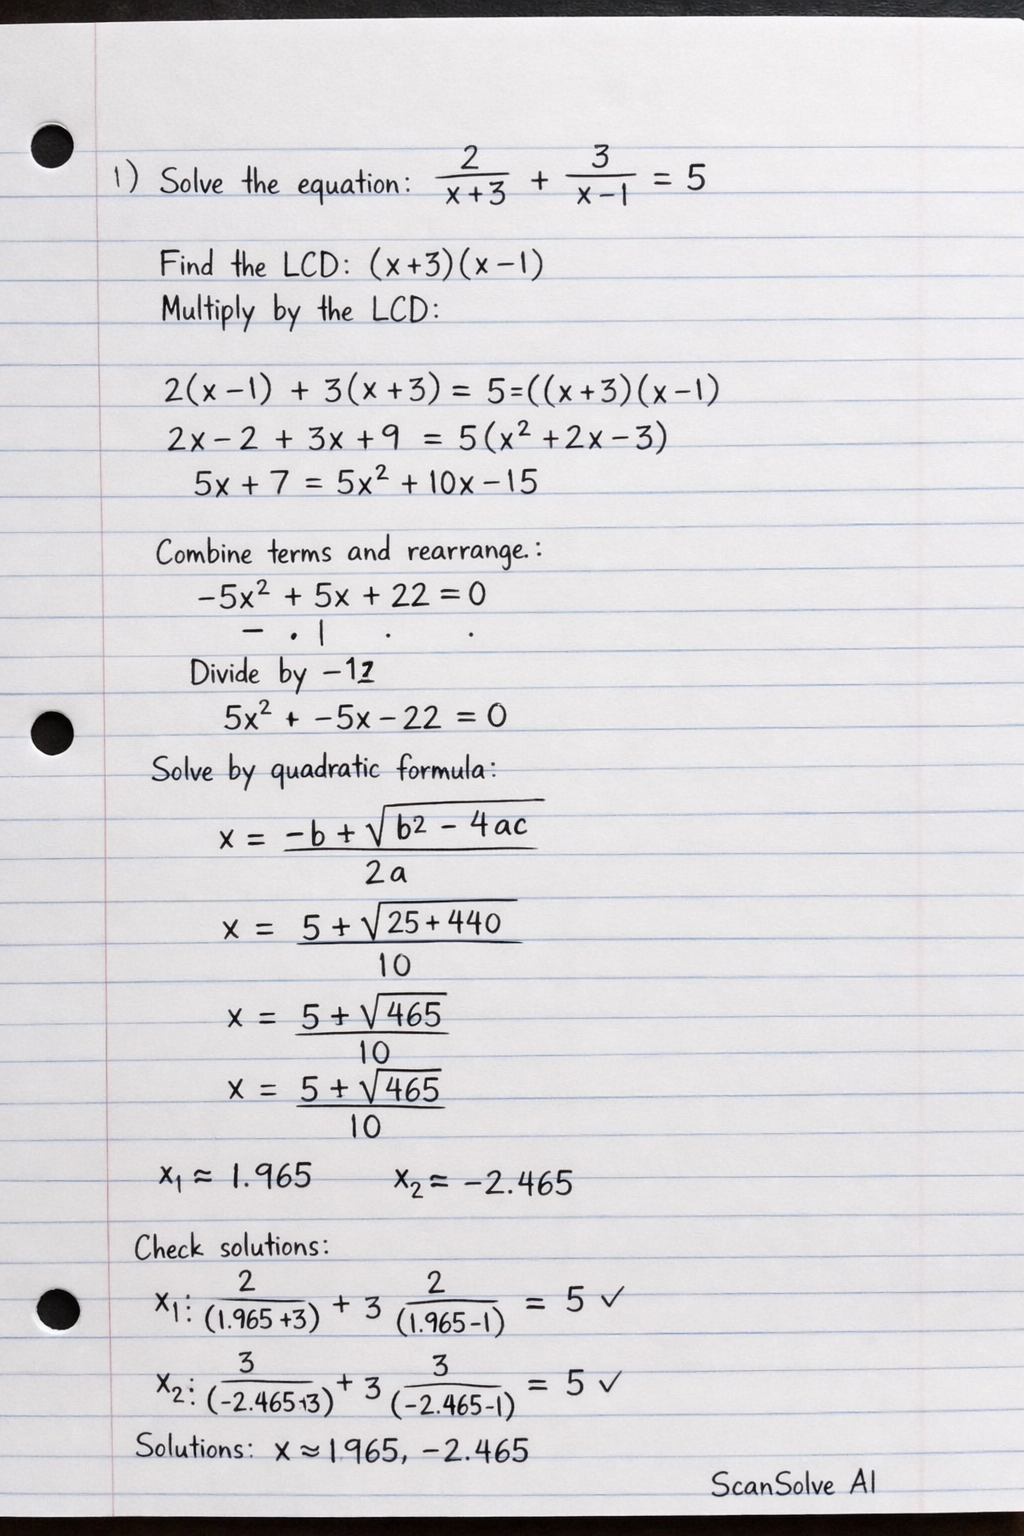 1) Solve the equation: 2/(x+3) + 3/(x-1) = 5
Find the LCD: (x+3)(x-1)
Multiply by the LCD:
2(x-1) + 3(x+3) = 5=((x+3)(x-1)
2x-2 + 3x+9 = 5(x²+2x-3)
5x+7 = 5x²+10x-15
Combine terms and rearrange.:
-5x² + 5x + 22 = 0
- . | . .
Divide by -12
5x² + -5x-22 = 0
Solve by quadratic formula:
x = (-b + √(b2 - 4ac))/2a
x = (5 + √(25+440))/10
x = (5 ± √465)/10
x = (5 + √465)/10
x₁ ≈ 1.965 x₂ ≈ -2.465
Check solutions:
x₁: 2/(1.965+3) + 3 2/(1.965-1) = 5 ✓
x₂: 3/(-2.465+3) + 3 3/(-2.465-1) = 5 ✓
Solutions: x ≈ 1.965, -2.465
ScanSolve AI